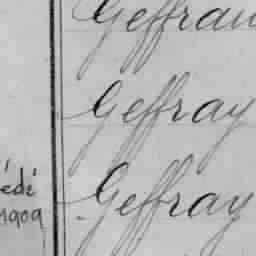 Geffrau
Geffray
édé
1909
Geffray